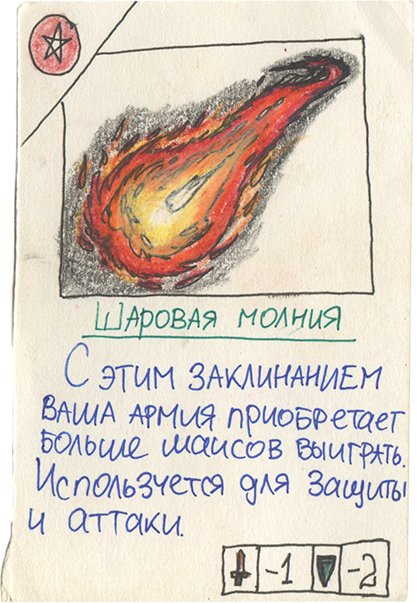 Шаровая молния
С этим заклинанием
ваша армия приобретает
больше шансов выиграть.
Используется для защиты
и аттаки.
-1 -2